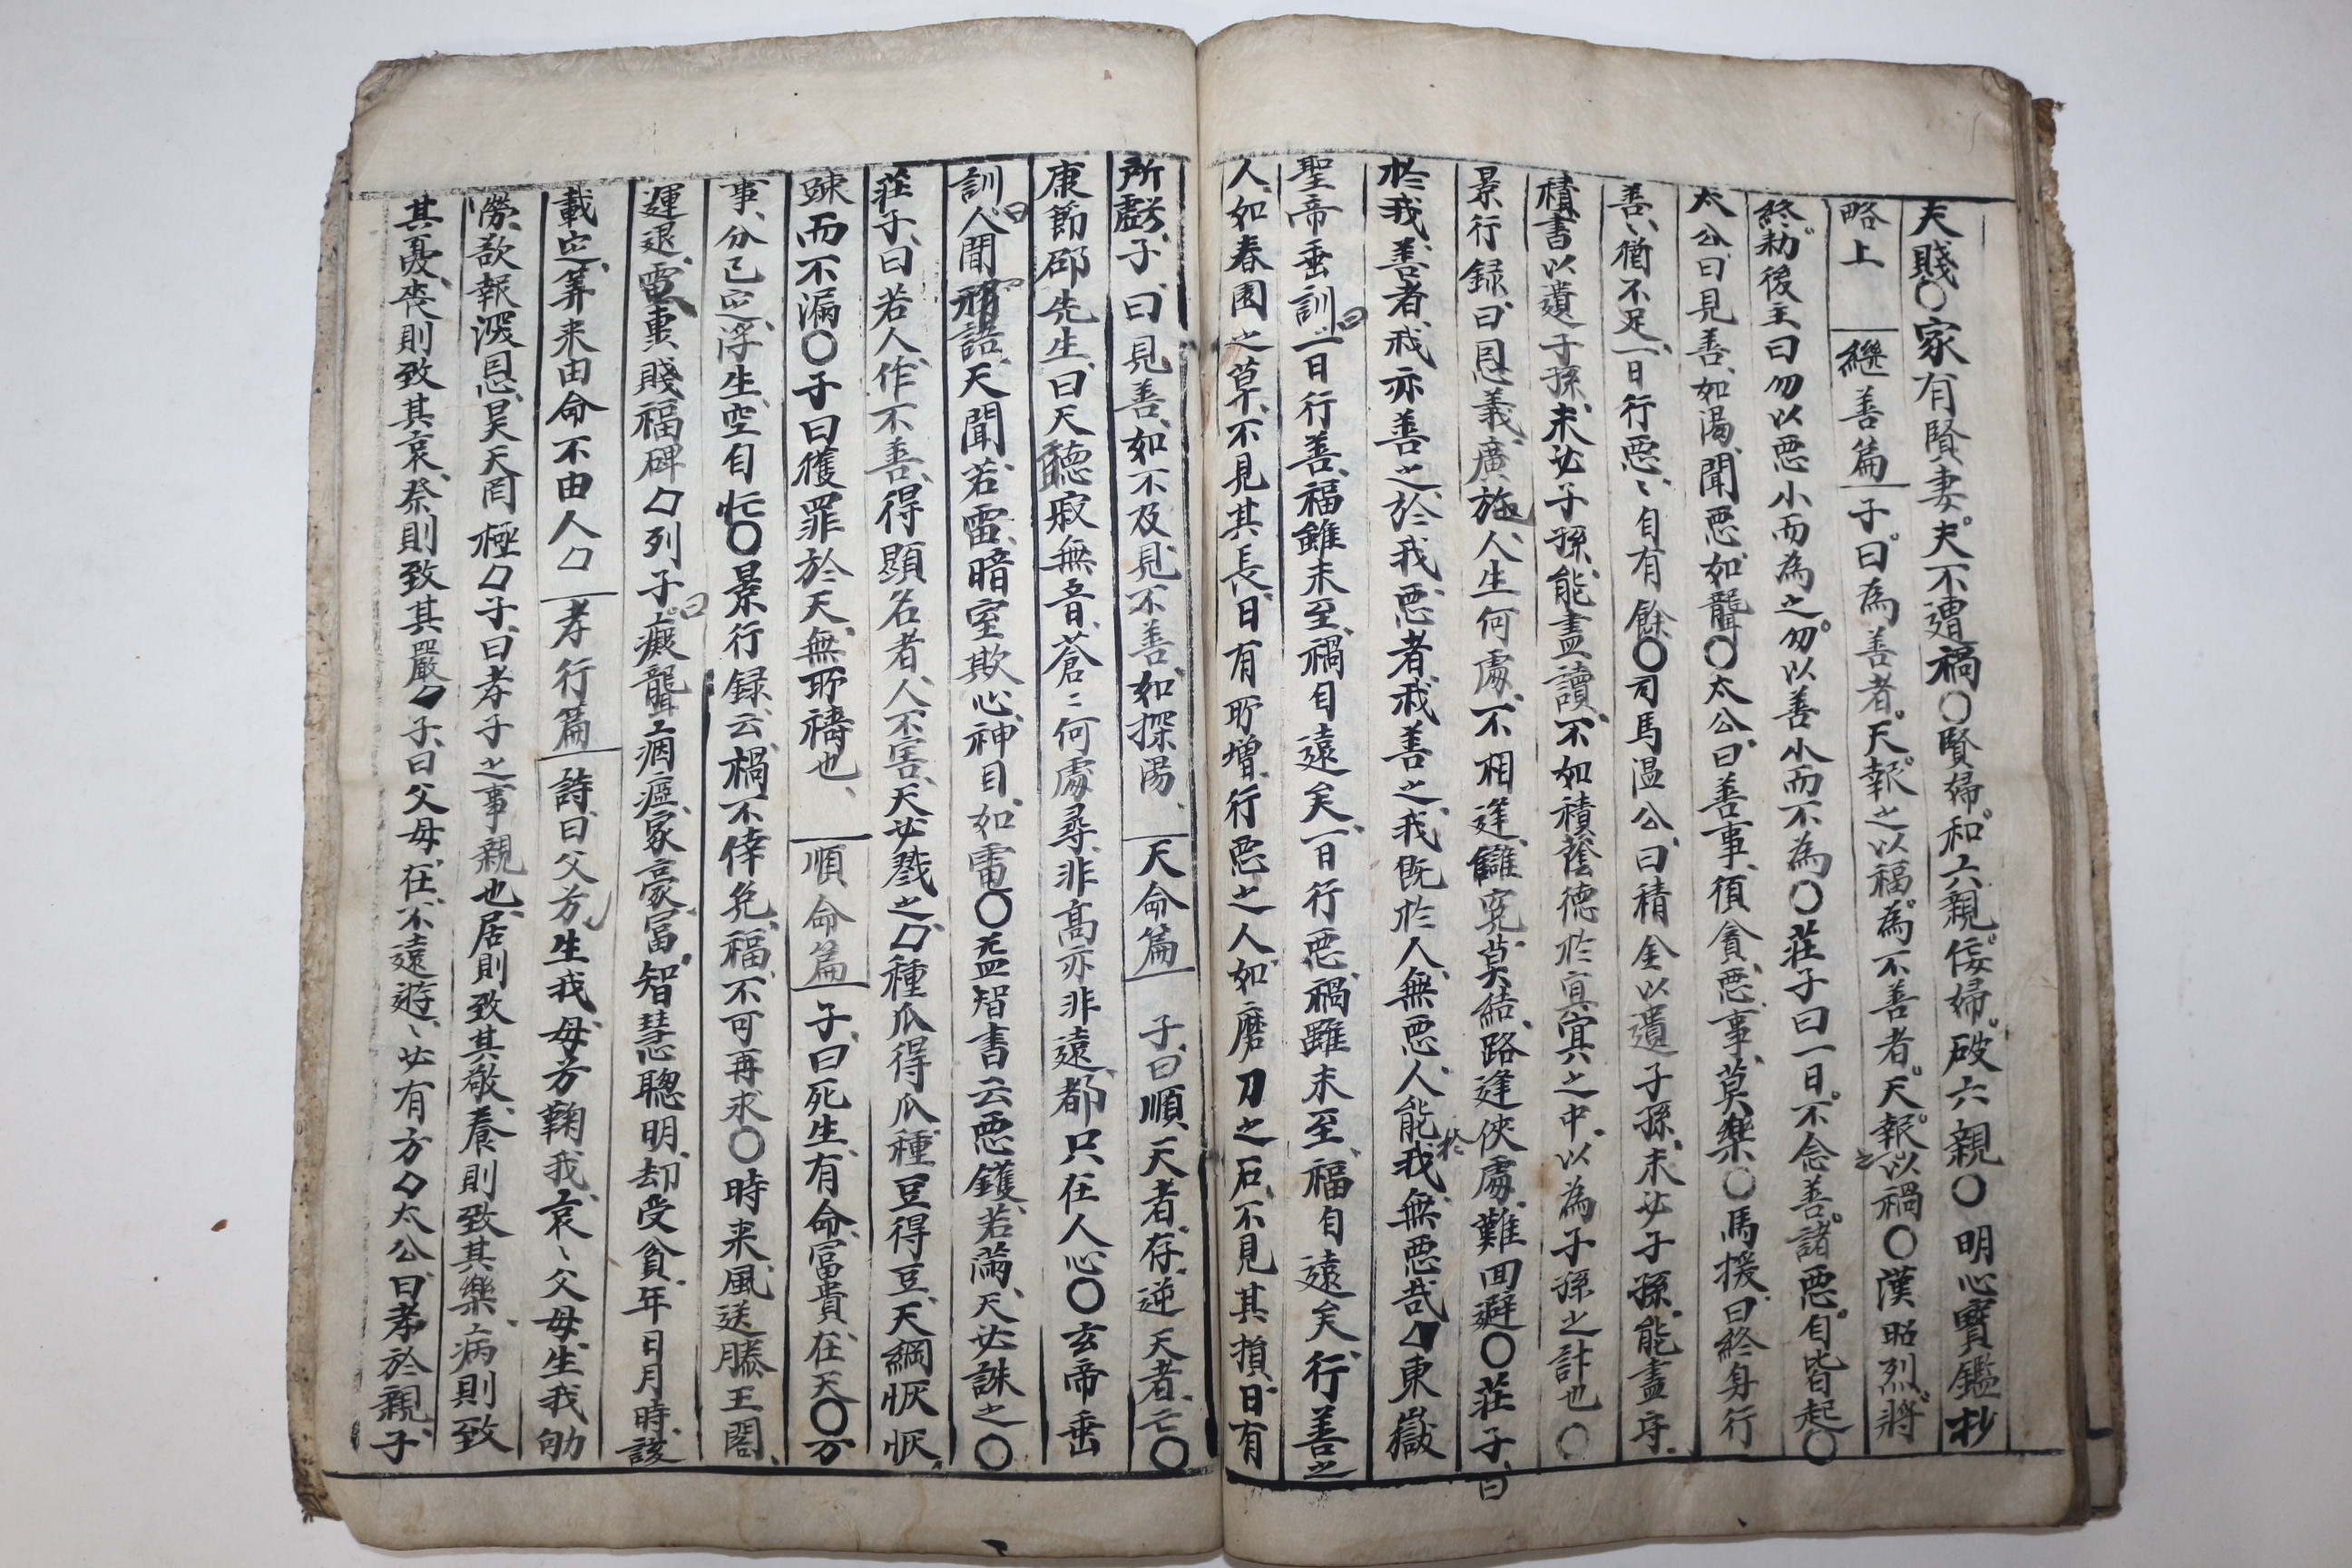 夫賤〇家有賢妻夫不遭禍〇賢婦和六親侫婦破六親〇明心寶鑑抄
略上 繼善篇 子曰為善者天報之以福為不善者天報之以禍〇漢昭烈將
終勑後主曰勿以惡小而為之勿以善小而不為〇莊子曰一日不念善諸惡自皆起〇
太公曰見善如渴聞惡如聾〇太公曰善事須貪惡事莫樂〇馬援曰終身行
善〻猶不足一日行惡〻自有餘〇司馬溫公曰積金以遺子孫未必子孫能盡守
積書以遺子孫未必子孫能盡讀不如積蔭德於冥冥之中以為子孫之計也〇
景行錄曰恩義廣施人生何處不相逢讎寃莫結路逢俠處難回避〇莊子曰
於我善者我亦善之於我惡者我善之我旣於人無惡人能於我無惡哉〇東嶽
聖帝垂訓曰一日行善福雖未至禍自遠矣一日行惡禍雖未至福自遠矣行善之
人如春園之草不見其長日有所增行惡之人如磨刀之石不見其損日有
所虧子曰見善如不及見不善如探湯 天命篇 子曰順天者存逆天者亡〇
康節邵先生曰天聽寂無音蒼〻何處尋非高亦非遠都只在人心〇玄帝垂
訓曰人間私語天聞若雷暗室欺心神目如電〇益智書云惡鑵若滿天必誅之〇
莊子曰若人作不善得顯名者人不害天必戮之〇種瓜得瓜種豆得豆天網恢恢
踈而不漏〇子曰獲罪於天無所禱也 順命篇 子曰死生有命富貴在天〇万
事分已定浮生空自忙〇景行録云禍不倖免福不可再求〇時来風送滕王閣
運退雷轟賤福碑〇列子曰癡聾痼瘂家豪富智慧聰明却受貧年日月時該
載定筭来由命不由人〇 孝行篇 詩曰父兮生我母兮鞠我哀〻父母生我劬
勞欲報深恩昊天罔極〇子曰孝子之事親也居則致其敬養則致其樂病則致
其憂喪則致其哀祭則致其嚴〇子曰父母在不遠遊〻必有方〇太公曰孝於親子